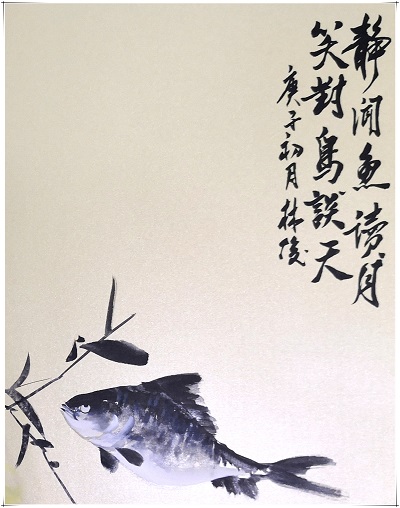 静闻鱼读月
笑對鳥談天
庚子初月林陵